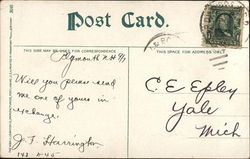 Post Card.
THIS SIDE MAY BE USED FOR CORRESPONDENCE
THIS SPACE FOR ADDRESS ONLY.
Plymouth
Will you please send
me one of yours in
exchange.
J. F. Harrington
C. E. Epley
Yale
Mich